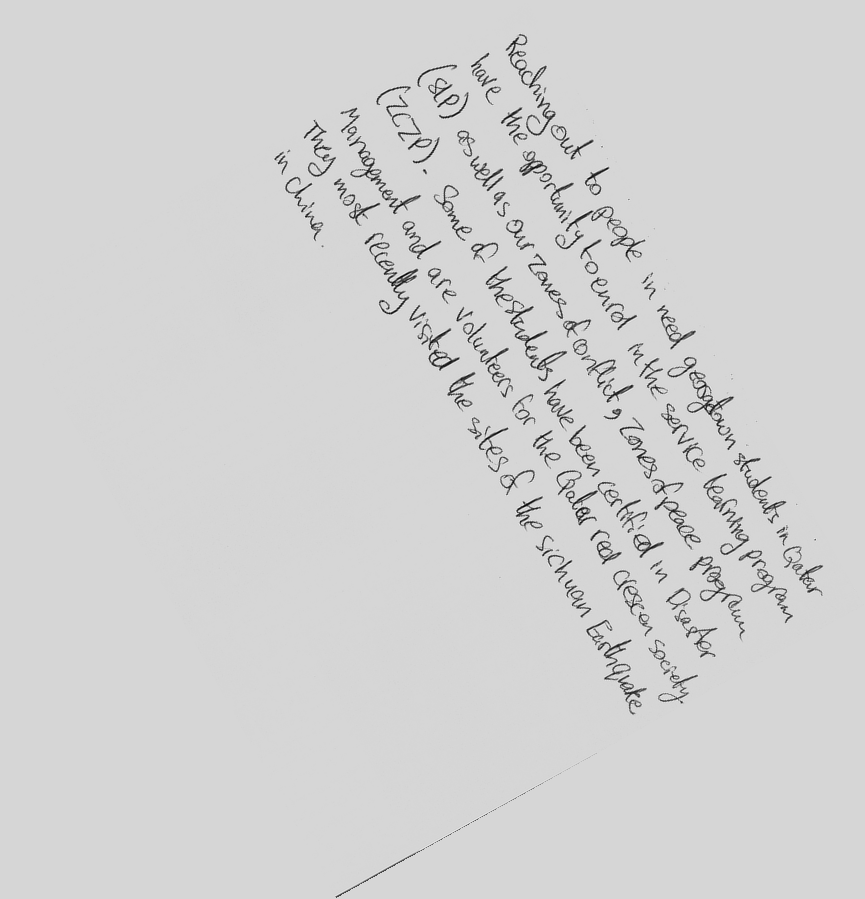 Reaching out to people in need georgetown students in Qatar
have the opportunity to enrol in the service learning program
(SLP) as well as our Zones of conflict, Zones of peace program
(ZCZP). Some of the students have been certified in Disaster
Management and are volunteers for the Qatar red crescen society.
They most recently visited the sites of the sichuan Earthquake
in China.